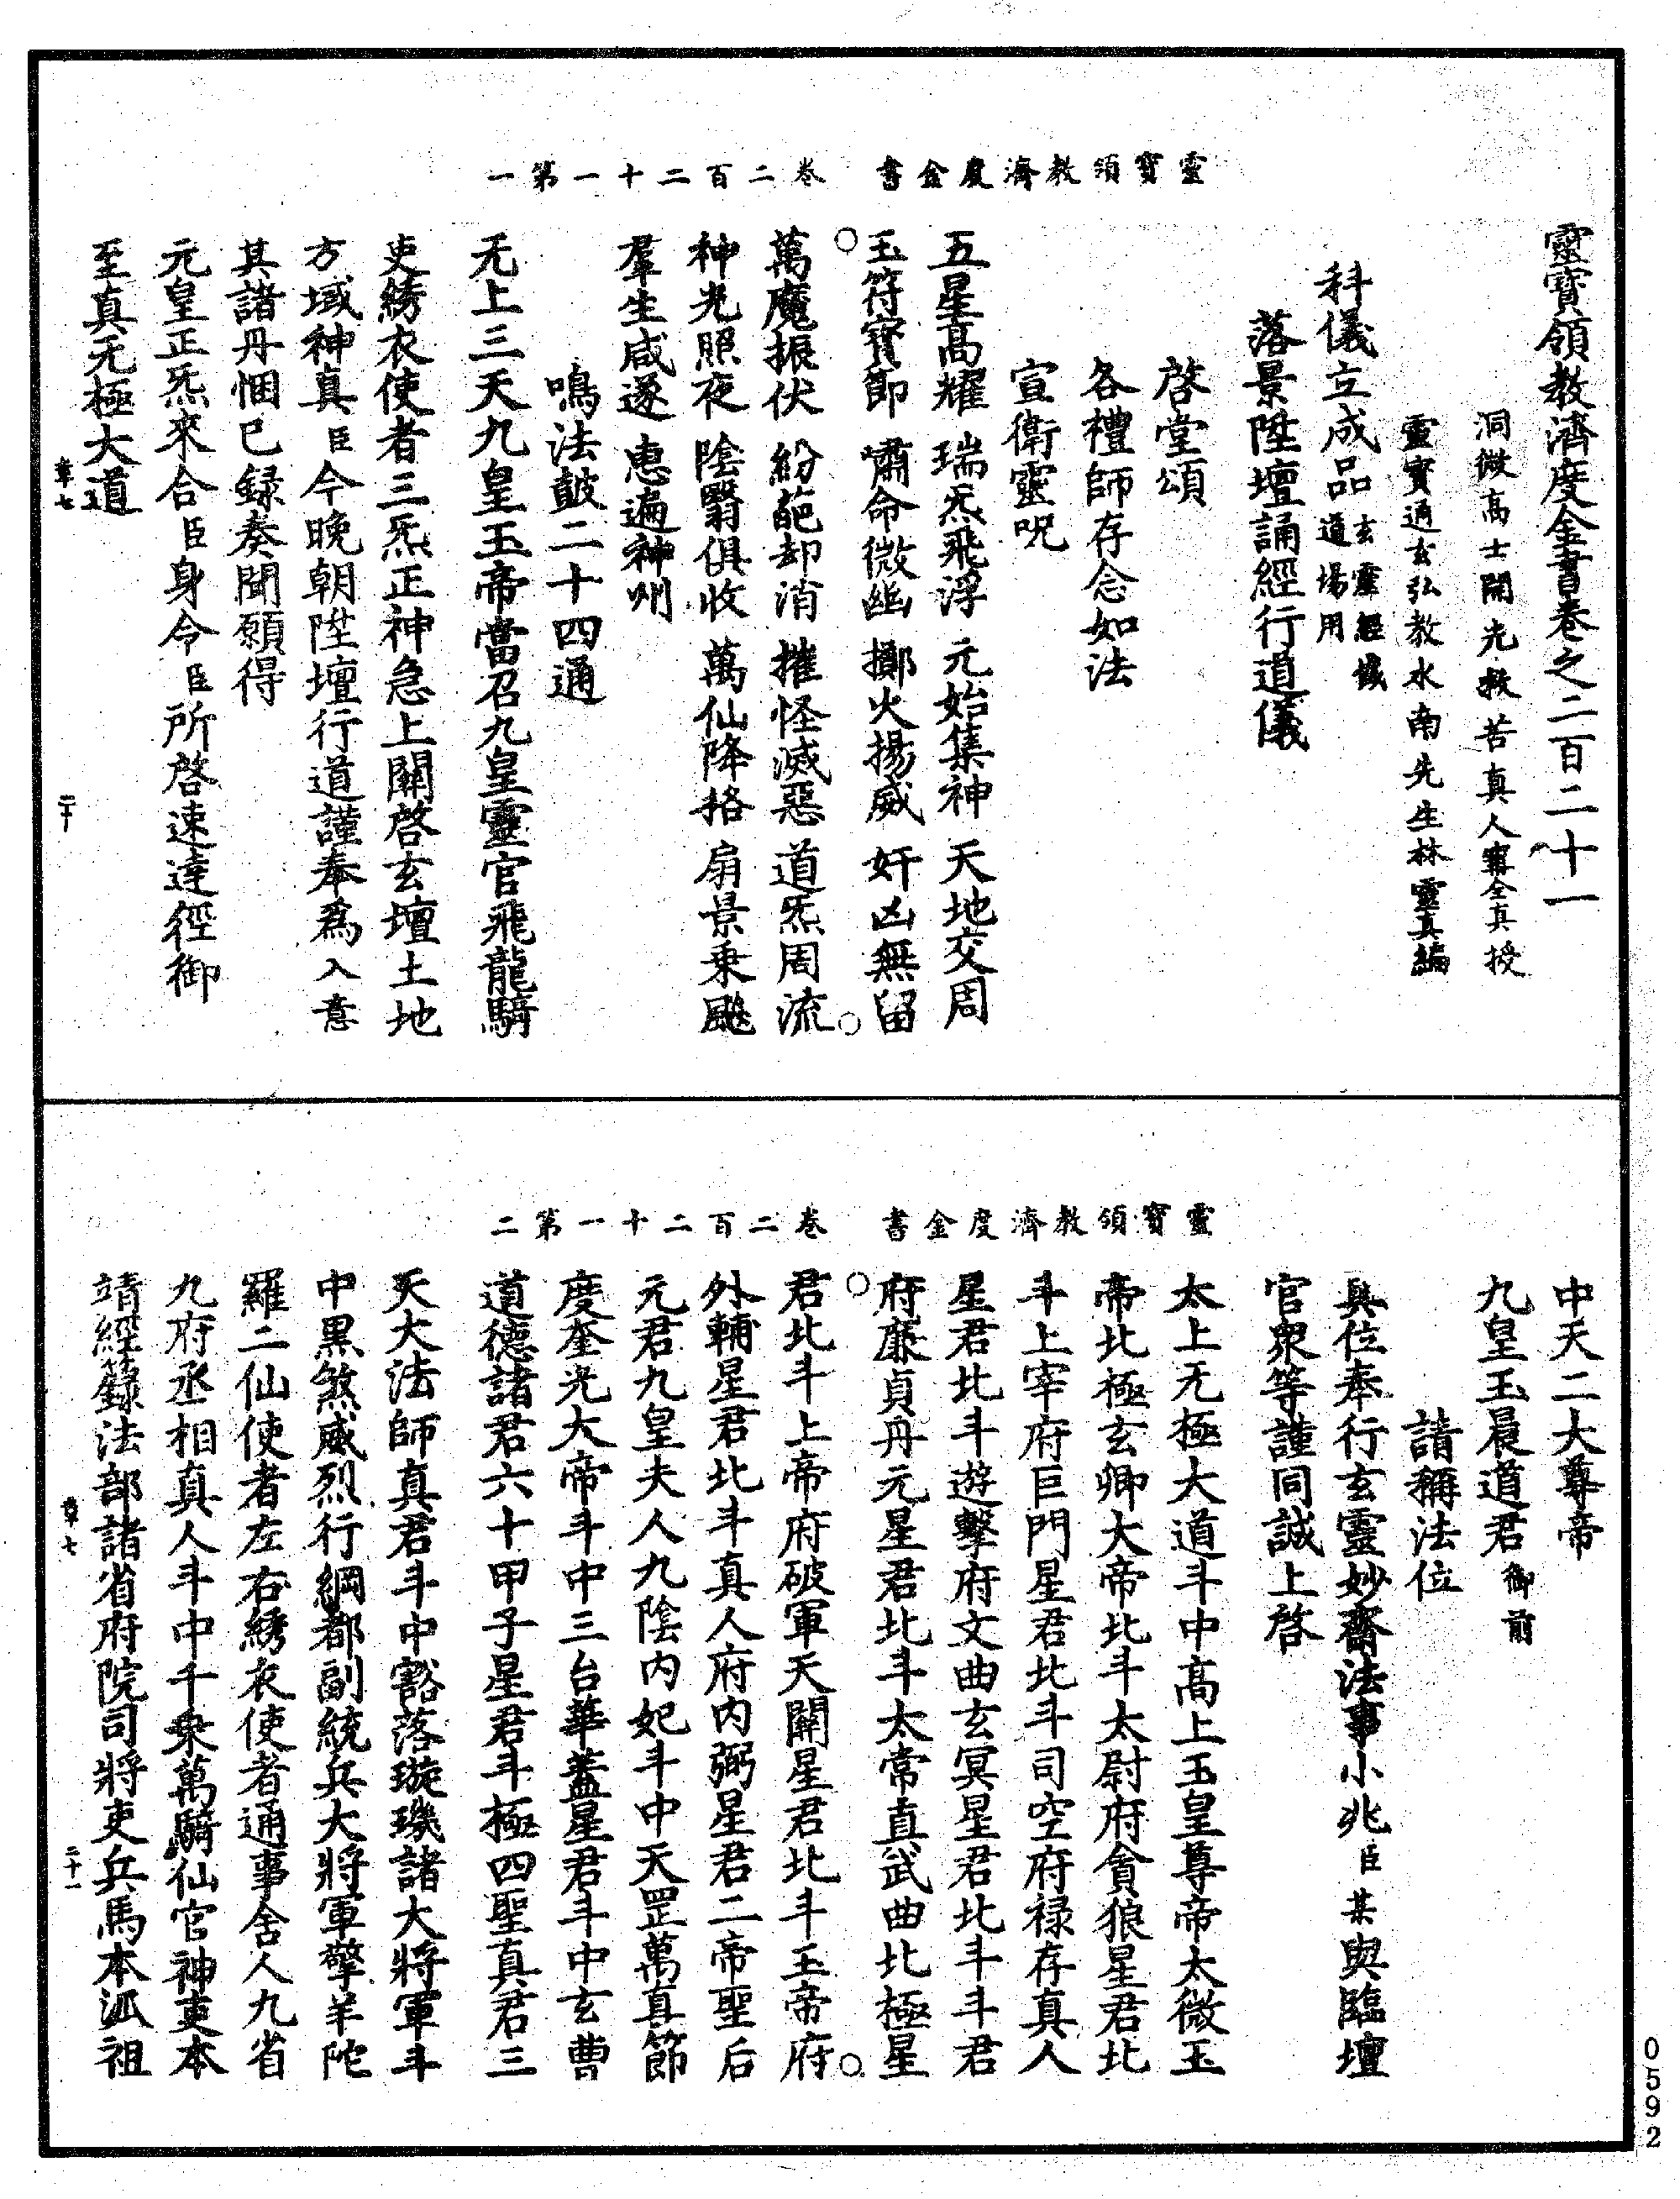 靈寶領教濟度金書　卷二百二十一第一
靈寶領教濟度金書卷之二百二十一
洞微高士開光救苦真人甯全真授
靈寶通玄弘教水南先生林靈真編
科儀立成品玄靈經懺道場用
落景陞壇誦經行道儀
啓堂頌
各禮師存念如法
宣衛靈呪
五星高耀　瑞炁飛浮　元始集神　天地交周
玉符寶節　嘯命微幽　擲火揚威　奸凶無留
萬魔振伏　紛葩却消　摧怪滅惡　道炁周流
神光照夜　陰翳俱收　萬仙降格　扇景乗飈
羣生咸遂　惠遍神州
鳴法鼓二十四通
无上三天九皇玉帝當召九皇靈官飛龍騎
吏綉衣使者三炁正神急上關啓玄壇土地
方域神真臣今晚朝陞壇行道謹奉爲入意
其諸丹悃已録奏聞願得
元皇正炁來合臣身令臣所啓速達徑御
至真无極大道
章七
二十
靈寶領教濟度金書　卷二百二十一第二
中天二大尊帝
九皇玉晨道君御前
請稱法位
具位奉行玄靈妙齋法事小兆臣某與臨壇
官衆等謹同誠上啓
太上无極大道斗中高上玉皇尊帝太微玉
帝北極玄卿大帝北斗太尉府貪狼星君北
斗上宰府巨門星君北斗司空府禄存真人
星君北斗遊擊府文曲玄冥星君北斗斗君
府廉貞丹元星君北斗太常直武曲北極星
君北斗上帝府破軍天關星君北斗玉帝府
外輔星君北斗真人府内弼星君二帝聖后
元君九皇夫人九陰内妃斗中天罡萬真節
度奎光大帝斗中三台華蓋星君斗中玄曹
道德諸君六十甲子星君斗極四聖真君三
天大法師真君斗中豁落璇璣諸大將軍斗
中黑煞威烈行綱都副統兵大將軍擎羊陀
羅二仙使者左右綉衣使者通事舍人九省
九府丞相真人斗中千乗萬騎仙官神吏本
靖經籙法部諸省府院司將吏兵馬本派祖
章七
二十一
0592